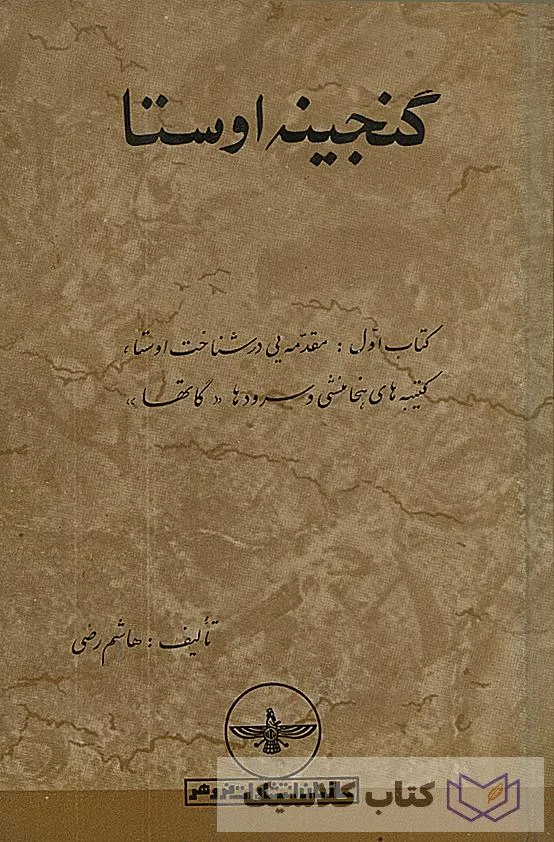 گنجینه اوستا
کتاب اوّل : مقدّمه یی در شناخت اوستا،
کتیبه های هخامنشی و سرودها «گاتها»
تألیف : هاشم رضی
کتاب کلاسیک